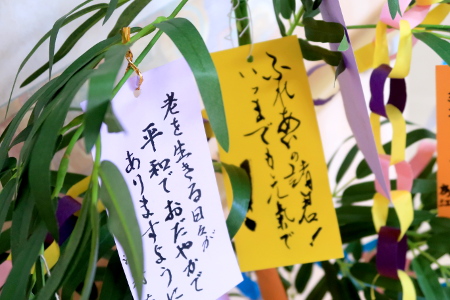 ふれあいの諸君!
いつまでも元気で
老を生きる日々が
平和でおだやかで
ありますように